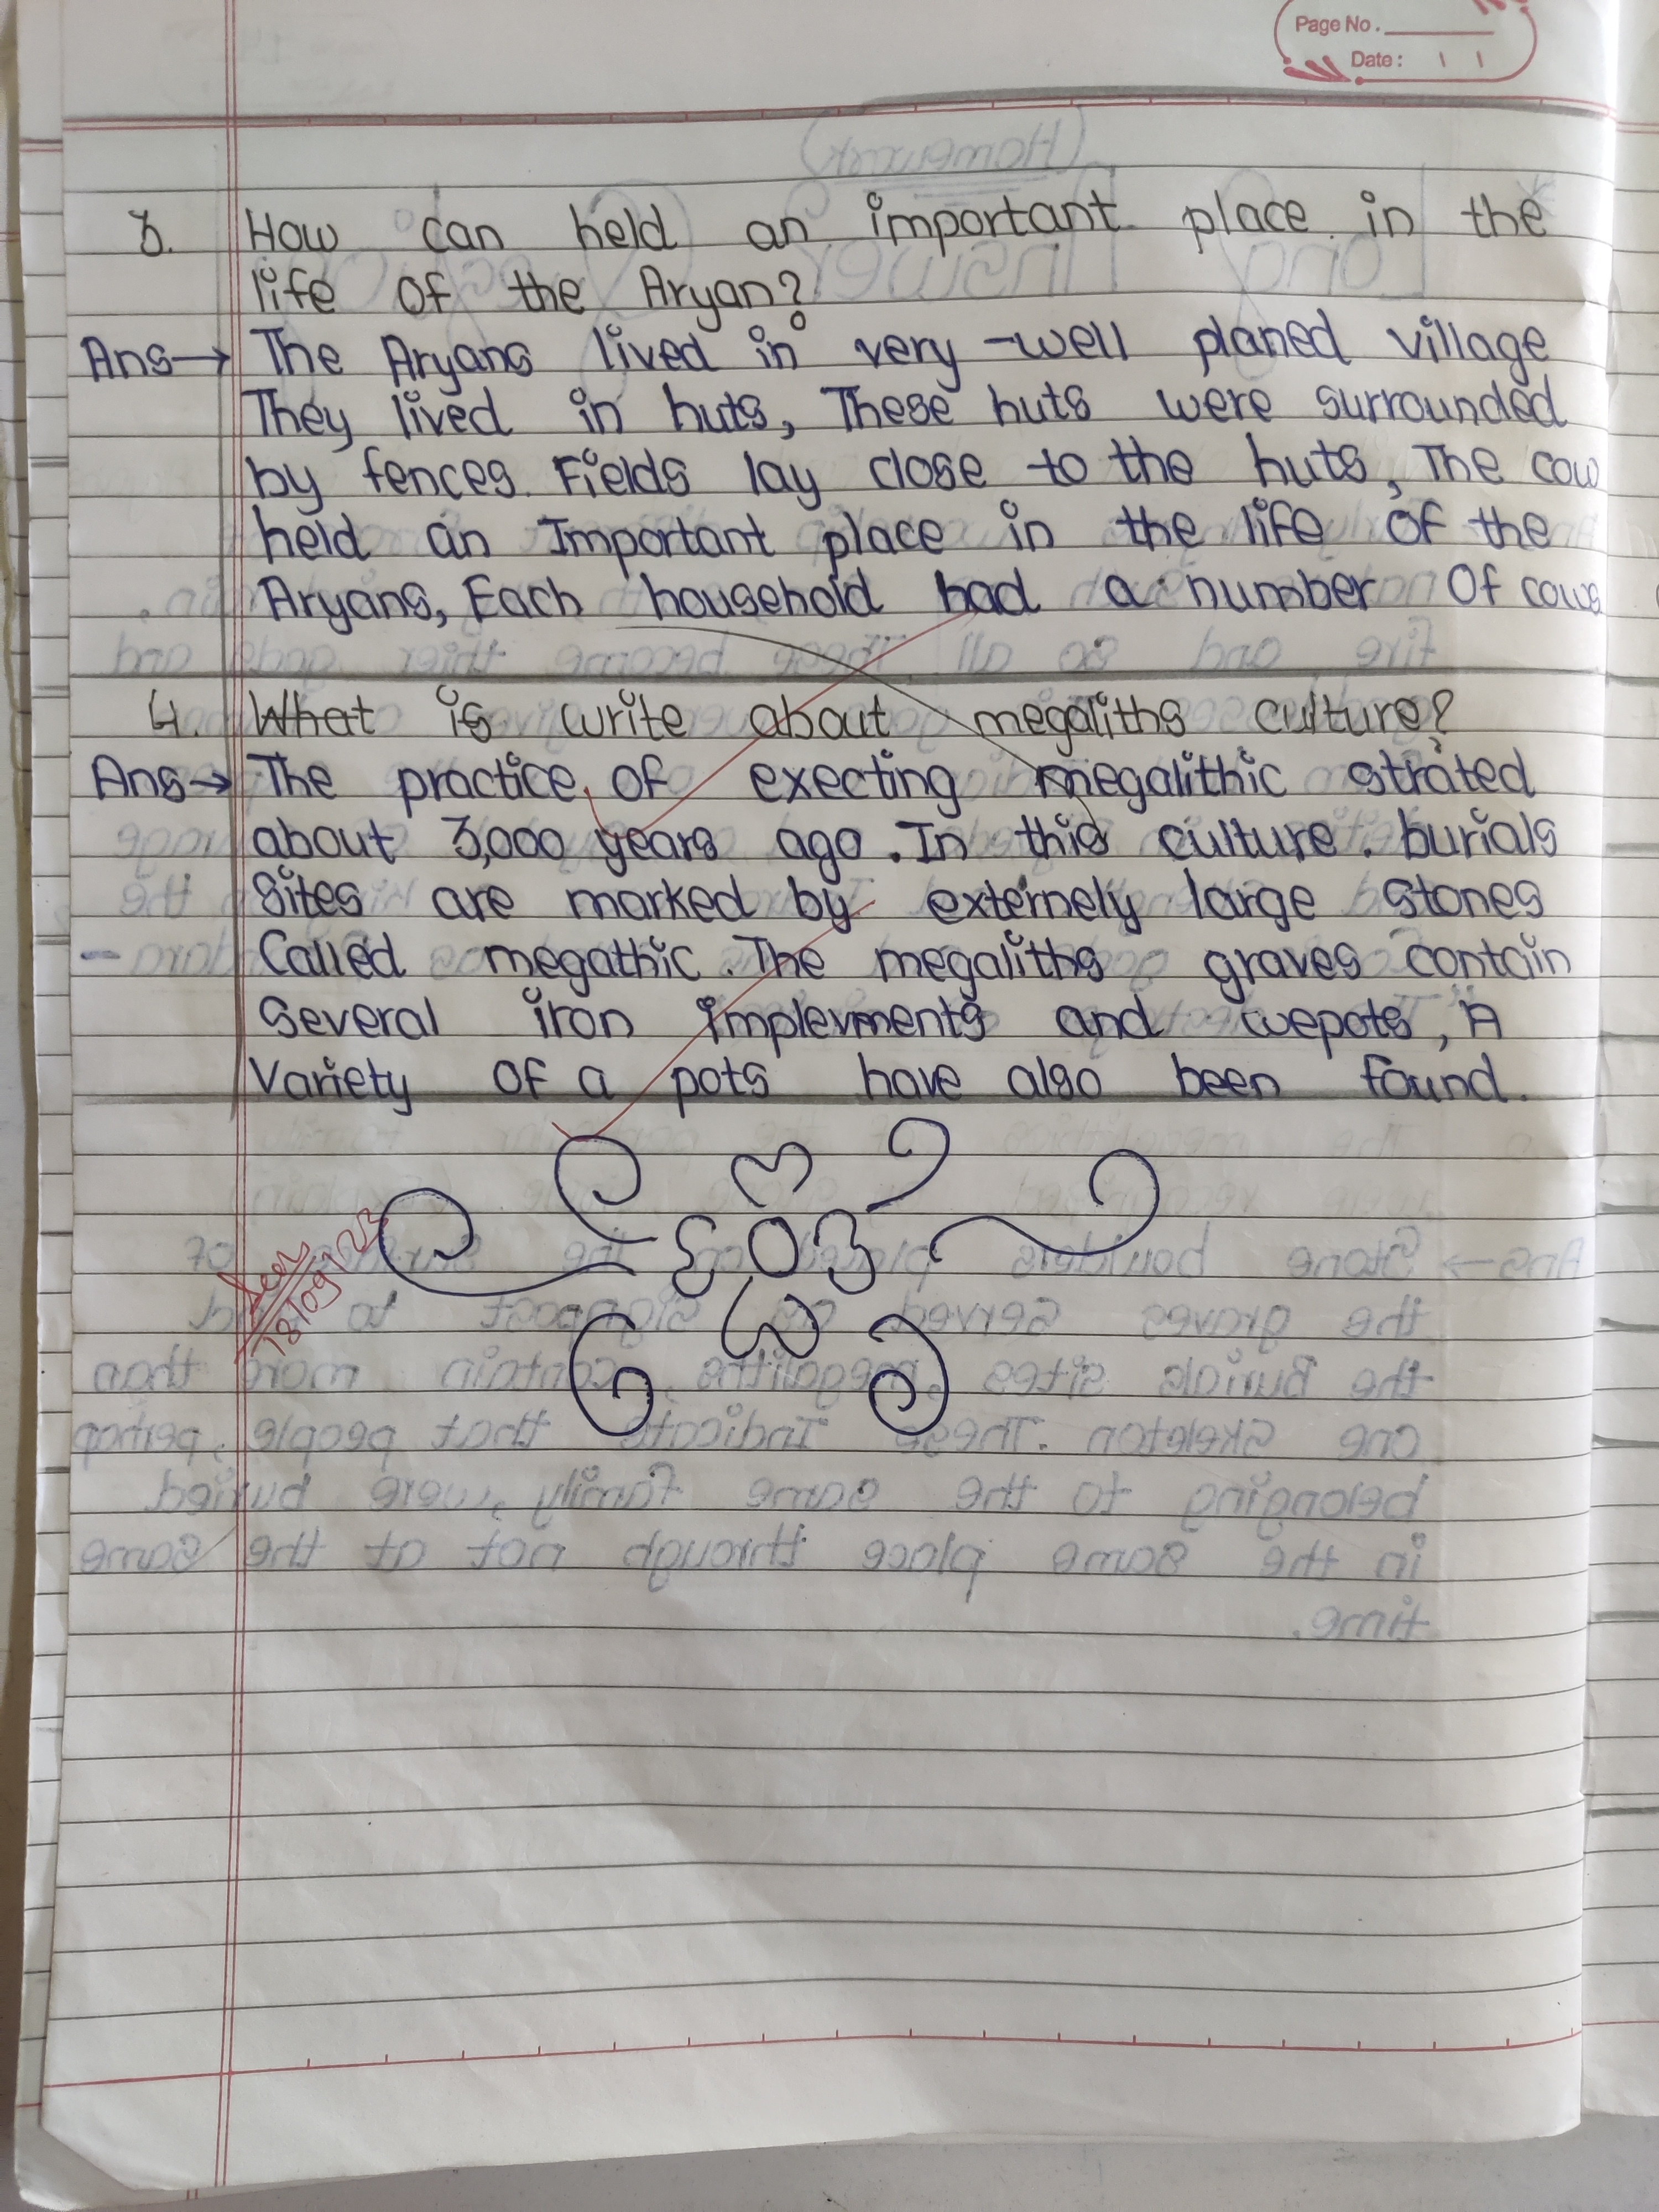 Page No.
Date:
3. How can held an important place in the
life of the Aryan?
Ans→ The Aryans lived in very-well planed village
They lived in huts, These huts were surrounded
by fences. Fields lay close to the huts, The cow
held an Important place in the life of the
Aryans, Each household had a number of cows
4. What is write about megaliths culture?
Ans→ The practice of execting megalithic strated
about 3,000 years ago. In this culture. burials
Sites are marked by externely large stones
Called megathic. The megaliths graves contain
Several iron implevments and wepots, A
Variety of a pots have also been found.
Seen
18/09/23